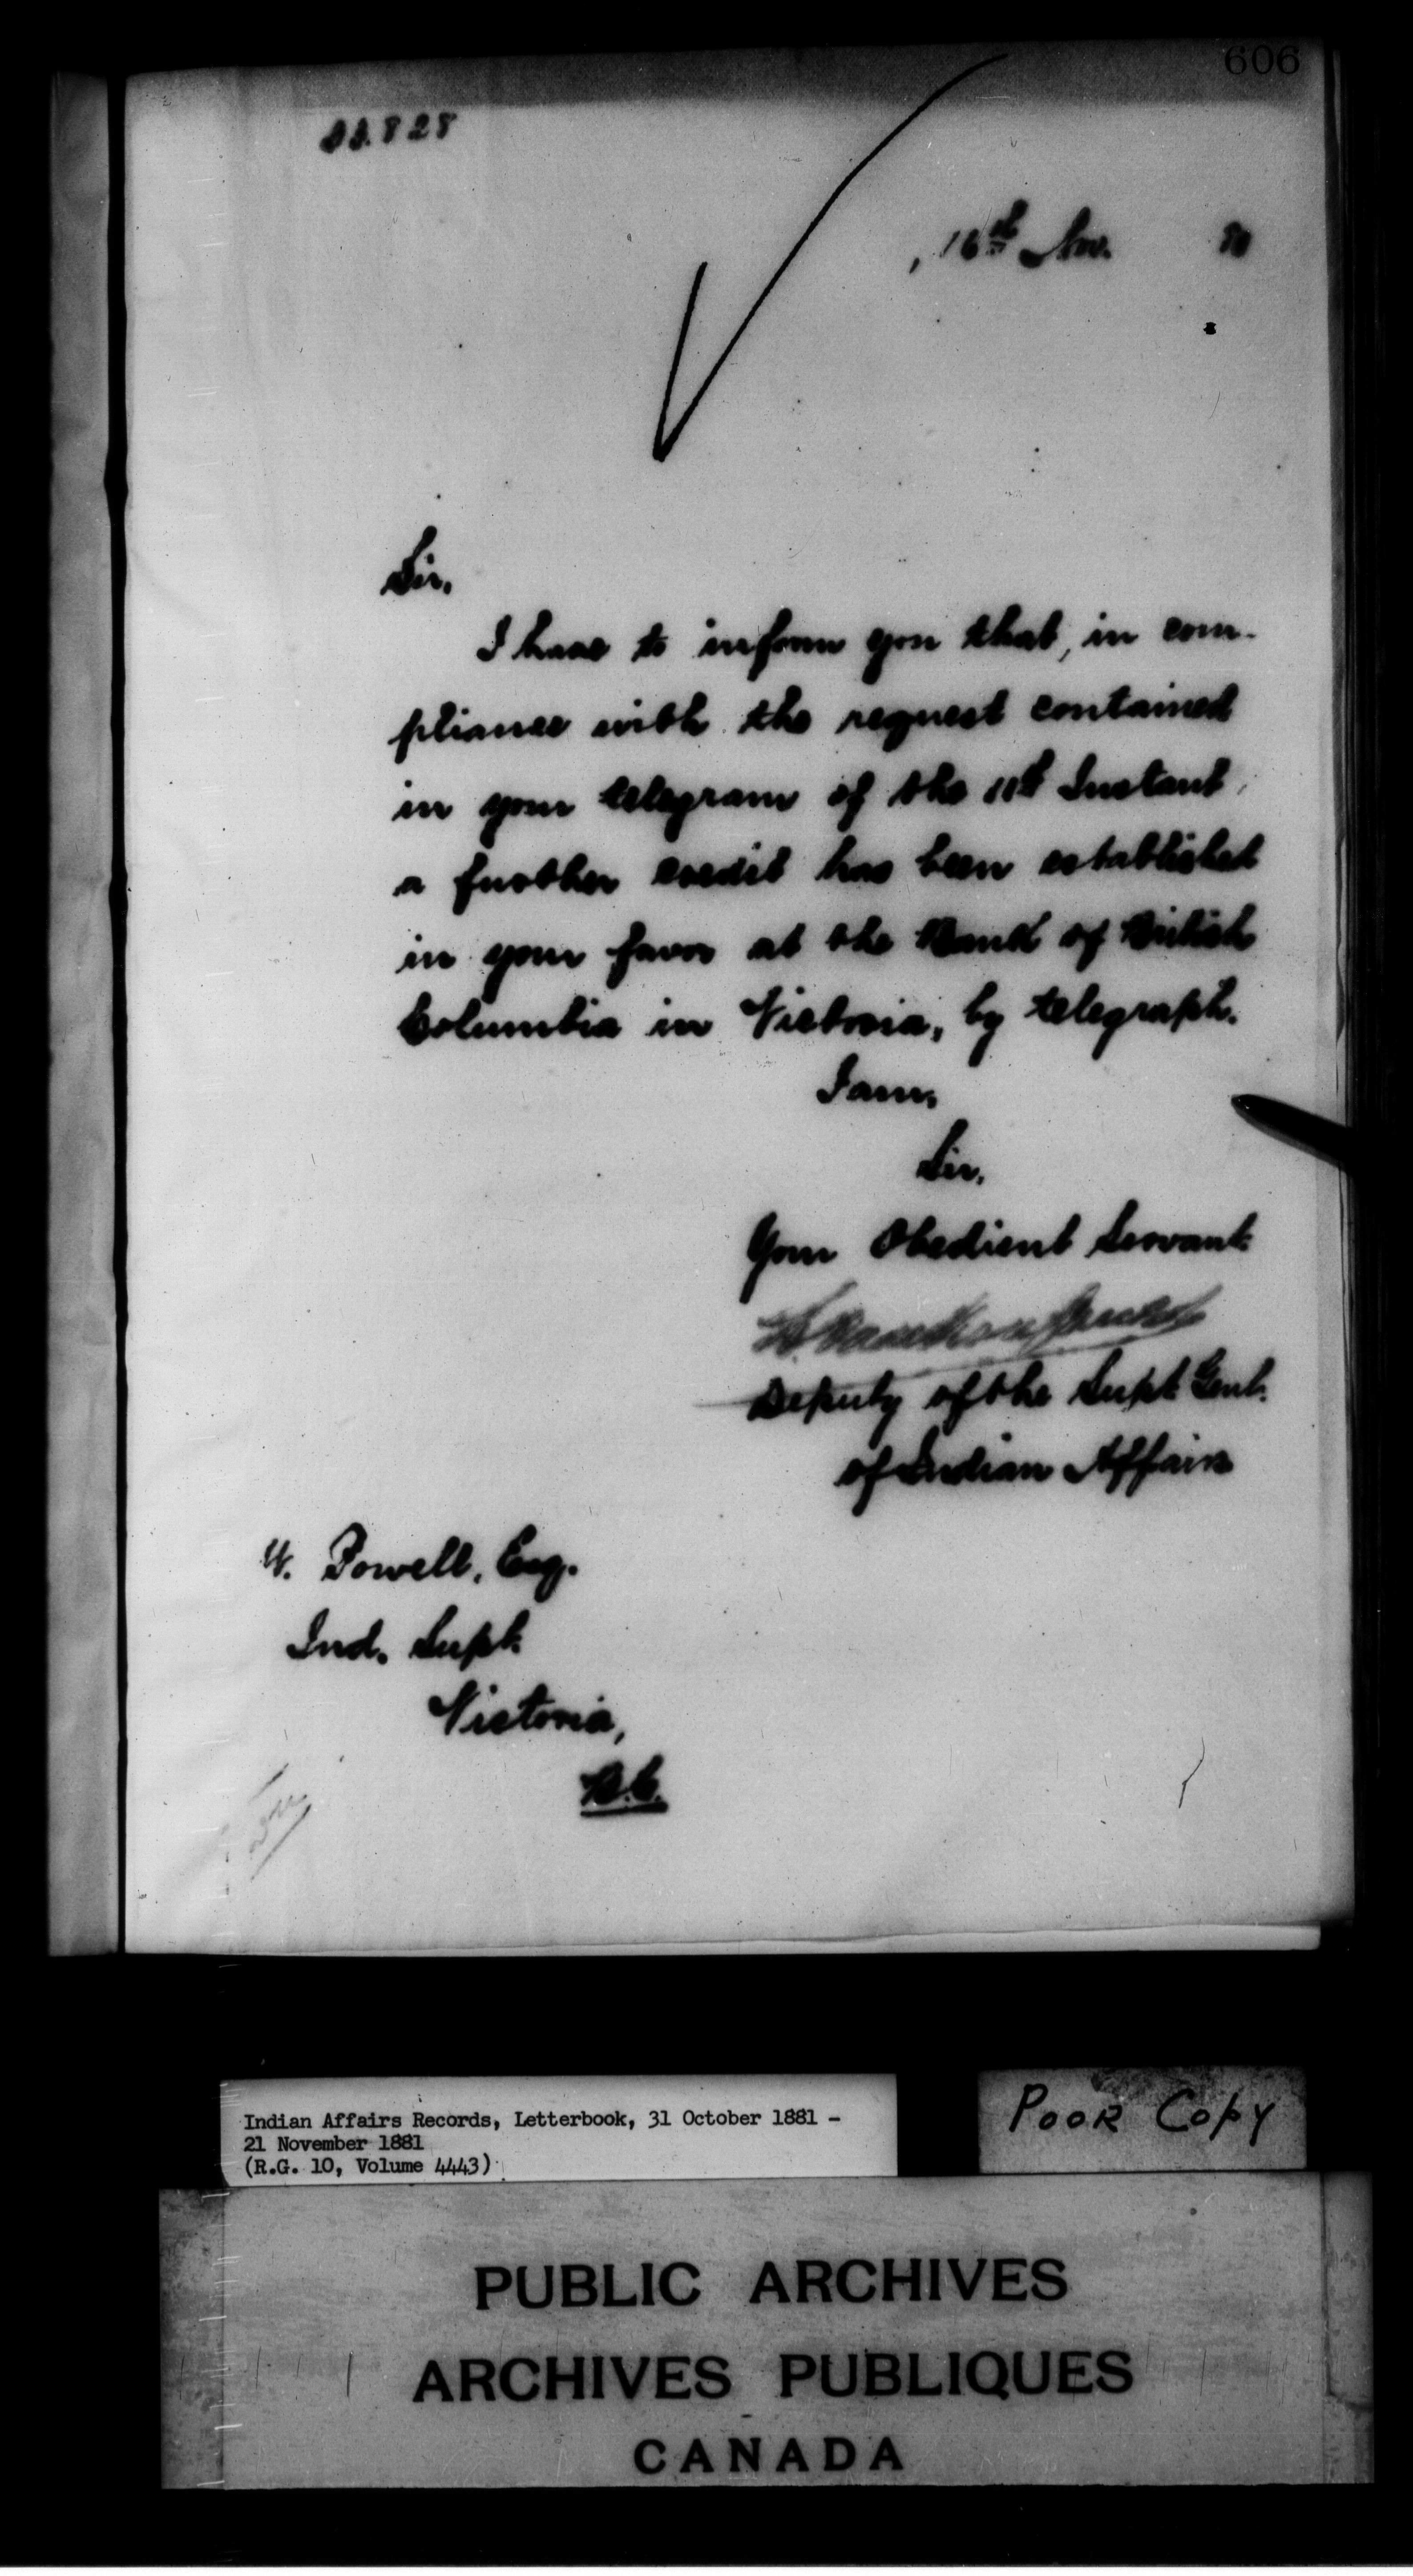 606
33.828
, 16th Nov.
Sir,
I have to inform you that, in com-
pliance with the request contained
in your telegram of the 11th Instant,
a further credit has been established
in your favor at the Bank of British
Columbia in Victoria, by telegraph.
I am,
Sir,
Your Obedient Servant
Deputy of the Supt. Genl.
of Indian Affairs
W. Powell, Esq.
Ind. Supt.
Victoria,
B.C.
Indian Affairs Records, Letterbook, 31 October 1881 -
21 November 1881
(R.G. 10, Volume 4443)
POOR COPY
PUBLIC ARCHIVES
ARCHIVES PUBLIQUES
CANADA